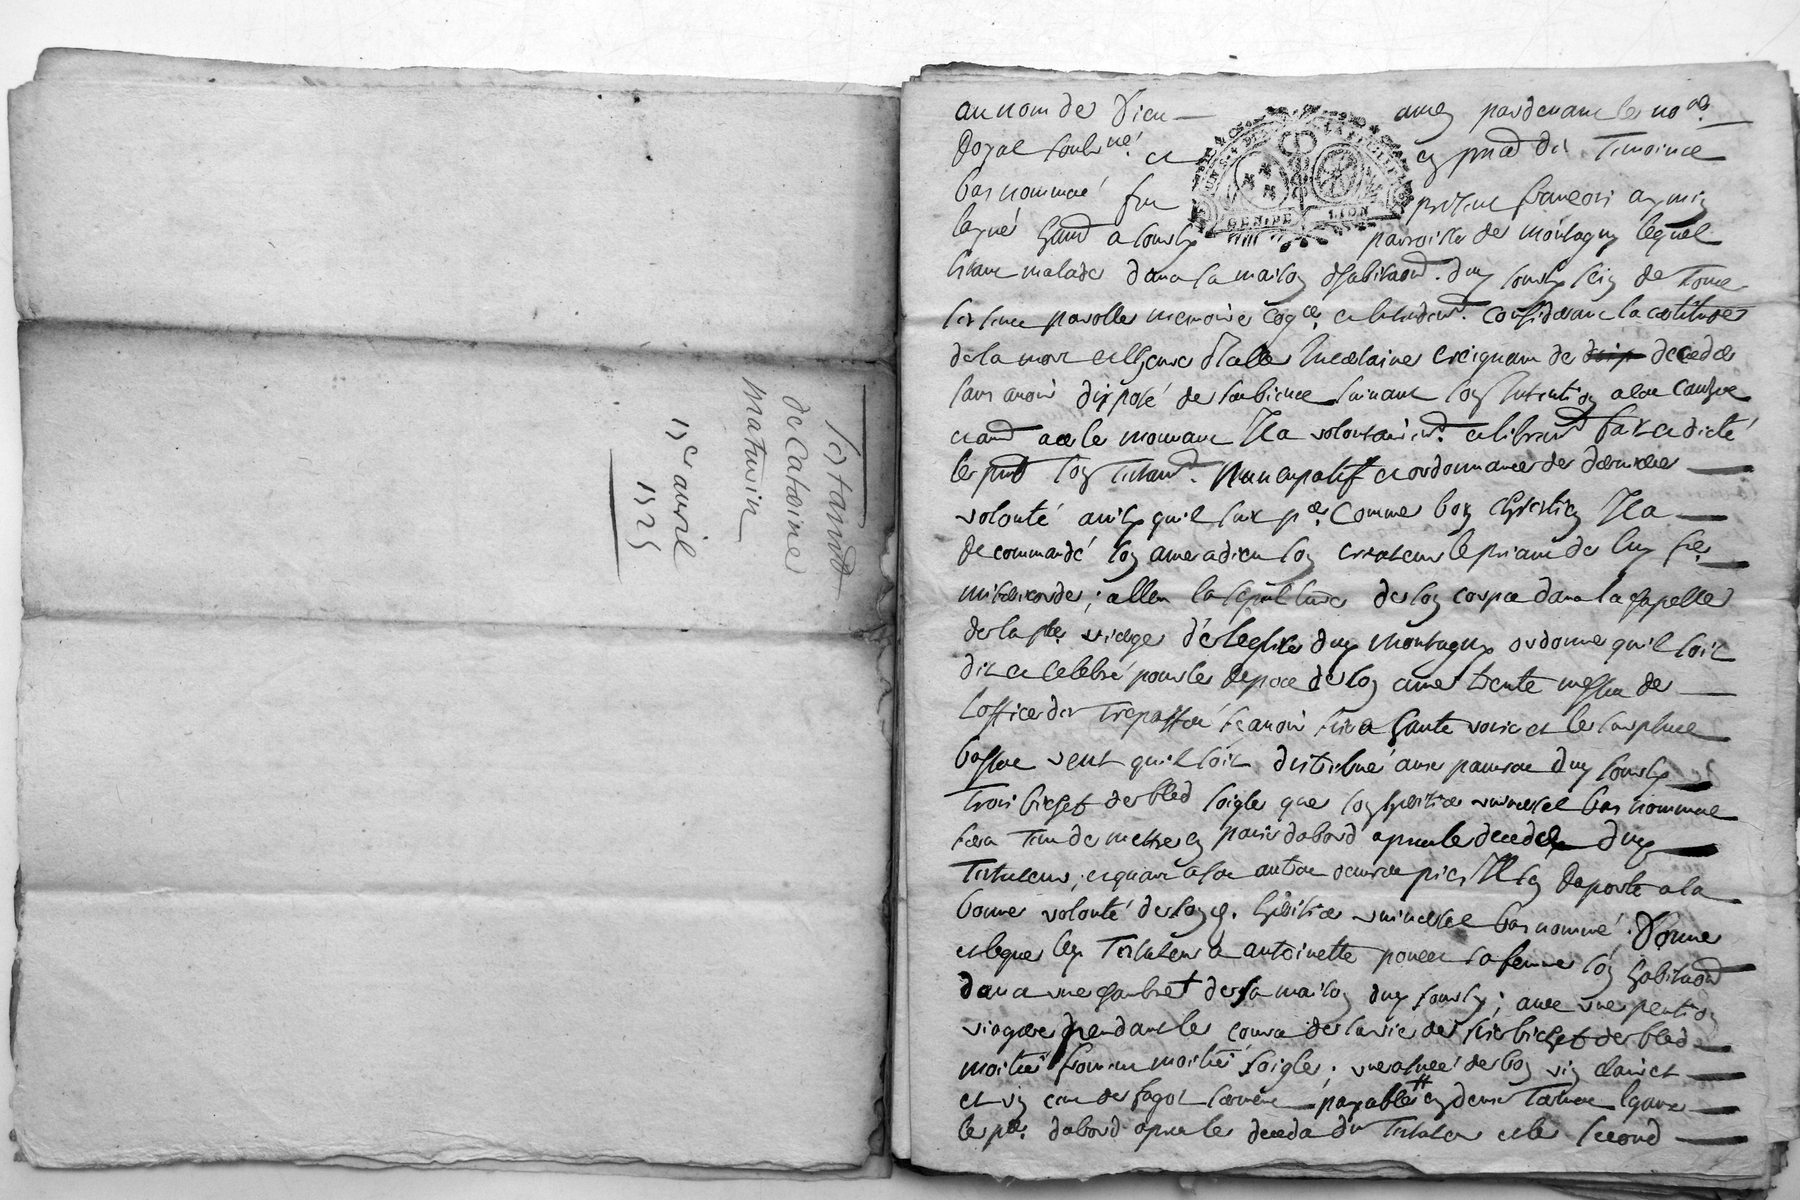 testamt
de Caterine
maturin
15e avril
1725
au nom de Dieu amen pardevant le nore
Royal soubné et en pnce des Temoins
bas nommé fut present françois
layné a sourzy parroisse de montagny lequel
estant malade dans la maison d'habitaon dudy sourzy de
ses sens parolle memoire et entendemt considerant la certitude
de la mort et l'heure d'Icelle Incertaine creignant de deceder
sans avoir disposé de ses biens suivant son Intention a ces causes
le mouvant Il a volontairemt et librement fait et dicté
le pnt son Testamt Nuncupatif et ordonnance de derniere
volonté ainsy qu'il suit pr Comme bon chrestien Il a
Recommandé son ame a dieu son createur le priant de luy fre
misericorde ; la sepulture de son corps dans la chapelle
de la ste vierge de l'eglise dudy montagny ordonne qu'il soit
dit et celebré pour le repos de son ame trente messes de
l'office des Trepassés scavoir six a haute voix et le surplus
basses veut qu'il soit distribué aux pauvres dudy sourzy
Trois bichets de bled soigle que son heritier universel bas nommé
sera Tenu de mettre en pain d'abord apres le deceds dudy
Testateur ; et quant a ses autres oeuvres pies Il s'en Raporte a la
bonne volonté de sond. heritier universel bas nommé. Donne
et legue ledy Testateur a antoinette poncet sa femme son habitaon
dans une chambre de sa maison dudy sourzy ; avec une pention
viagere pendant le cours de sa vie de six bichets de bled
moitié froment moitié soigle ; une asnée de bon vin clairet
et un cent de fagot payable en deux Termes Egaux
le pr. d'abord apres le deceds du Testateur et le second